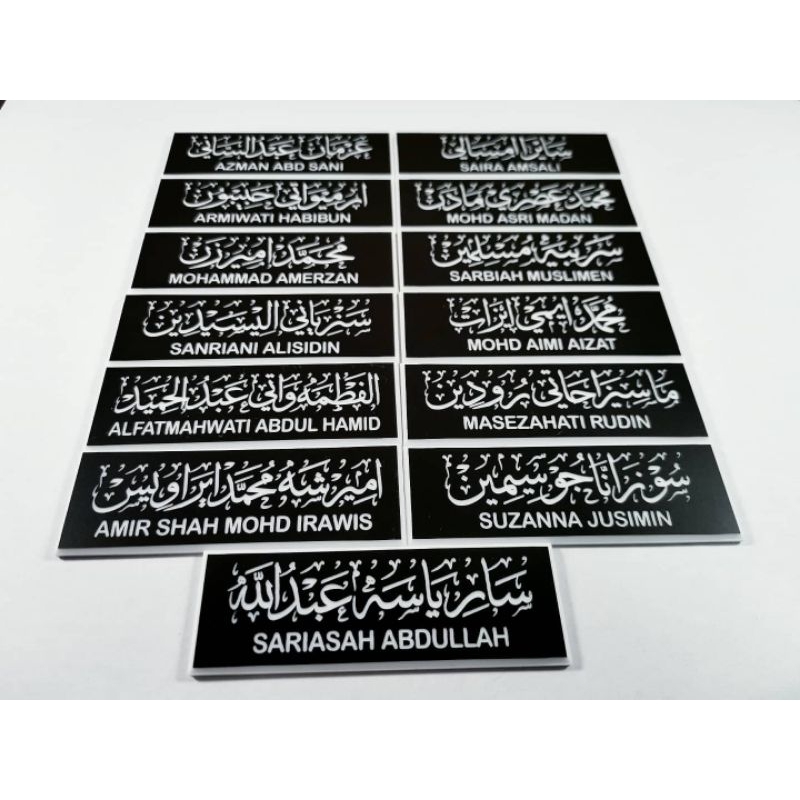 عزمان عبد الساني
AZMAN ABD SANI
سايرا امسالي
SAIRA AMSALI
ارميواتي حبيبون
ARMIWATI HABIBUN
محمد عصري مادن
MOHD ASRI MADAN
محمد اميرزن
MOHAMMAD AMERZAN
سربيه مسلمين
SARBIAH MUSLIMEN
سنرياني اليسيدين
SANRIANI ALISIDIN
محمد ايمي ايزات
MOHD AIMI AIZAT
الفطمه واتي عبد الحميد
ALFATMAHWATI ABDUL HAMID
ماسزاحاتي رودين
MASEZAHATI RUDIN
امير شه محمد ايراويس
AMIR SHAH MOHD IRAWIS
سوزانا جوسيمين
SUZANNA JUSIMIN
سارياسه عبدالله
SARIASAH ABDULLAH